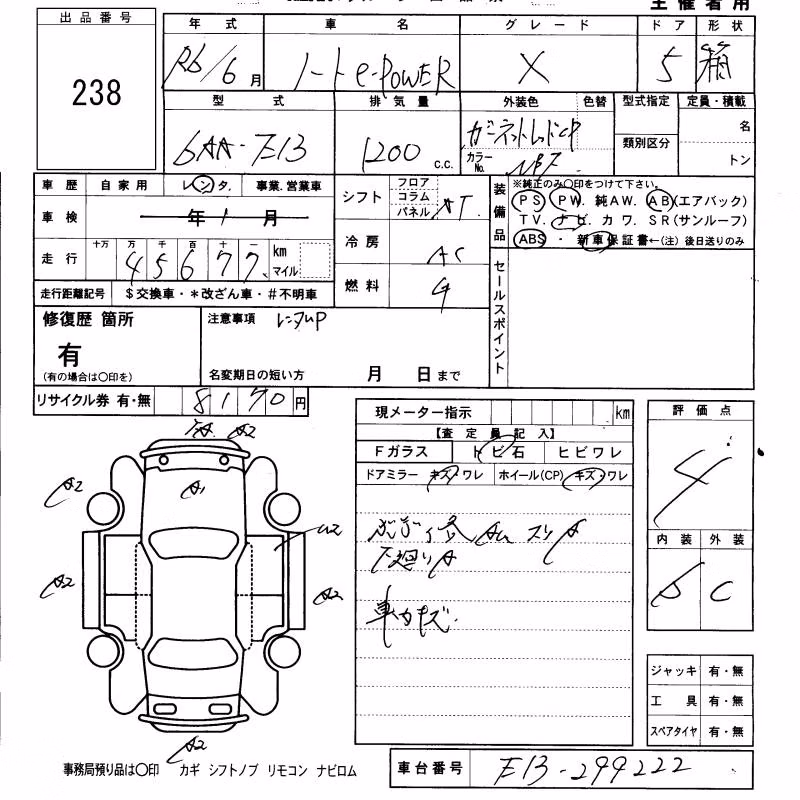 主催者用
出品番号
238
年式 車名 グレード ドア 形状
R6/6月 ノート e-POWER X 5 箱
型式 排気量 外装色 色替 型式指定 定員・積載
6AA-E13 1200 c.c. ガーネットレッドCP 類別区分 名
カラーNo. NBF トン
車歴 自家用 レンタ. 事業.営業車
車検 年 1 月
走行 十万 万 千 百 十 一 km マイル
4 5 6 7 7
走行距離記号 $交換車・*改ざん車・#不明車
シフト フロア コラム パネル AT
冷房 AC
燃料 G
装備品 ※純正のみ○印をつけて下さい。
PS PW. 純AW. AB(エアバック)
TV. ナビ. カワ. SR(サンルーフ)
ABS・ 新車保証書←(注)後日送りのみ
セールスポイント
修復歴 箇所
有
(有の場合は○印を)
注意事項 レンタUP
名変期日の短い方 月 日まで
リサイクル券 有・無 8170円
現メーター指示 km
【査定員記入】
Fガラス トビ石 ヒビワレ
ドアミラー キズ・ワレ ホイール(CP) キズ・ワレ
スリA
下廻りA
車内キズ
評価点
4
内装 外装
C
A2 A2
A1
A2
A2
A2
A2
ジャッキ 有・無
工具 有・無
スペアタイヤ 有・無
事務局預り品は○印 カギ シフトノブ リモコン ナビロム
車台番号 E13-299222